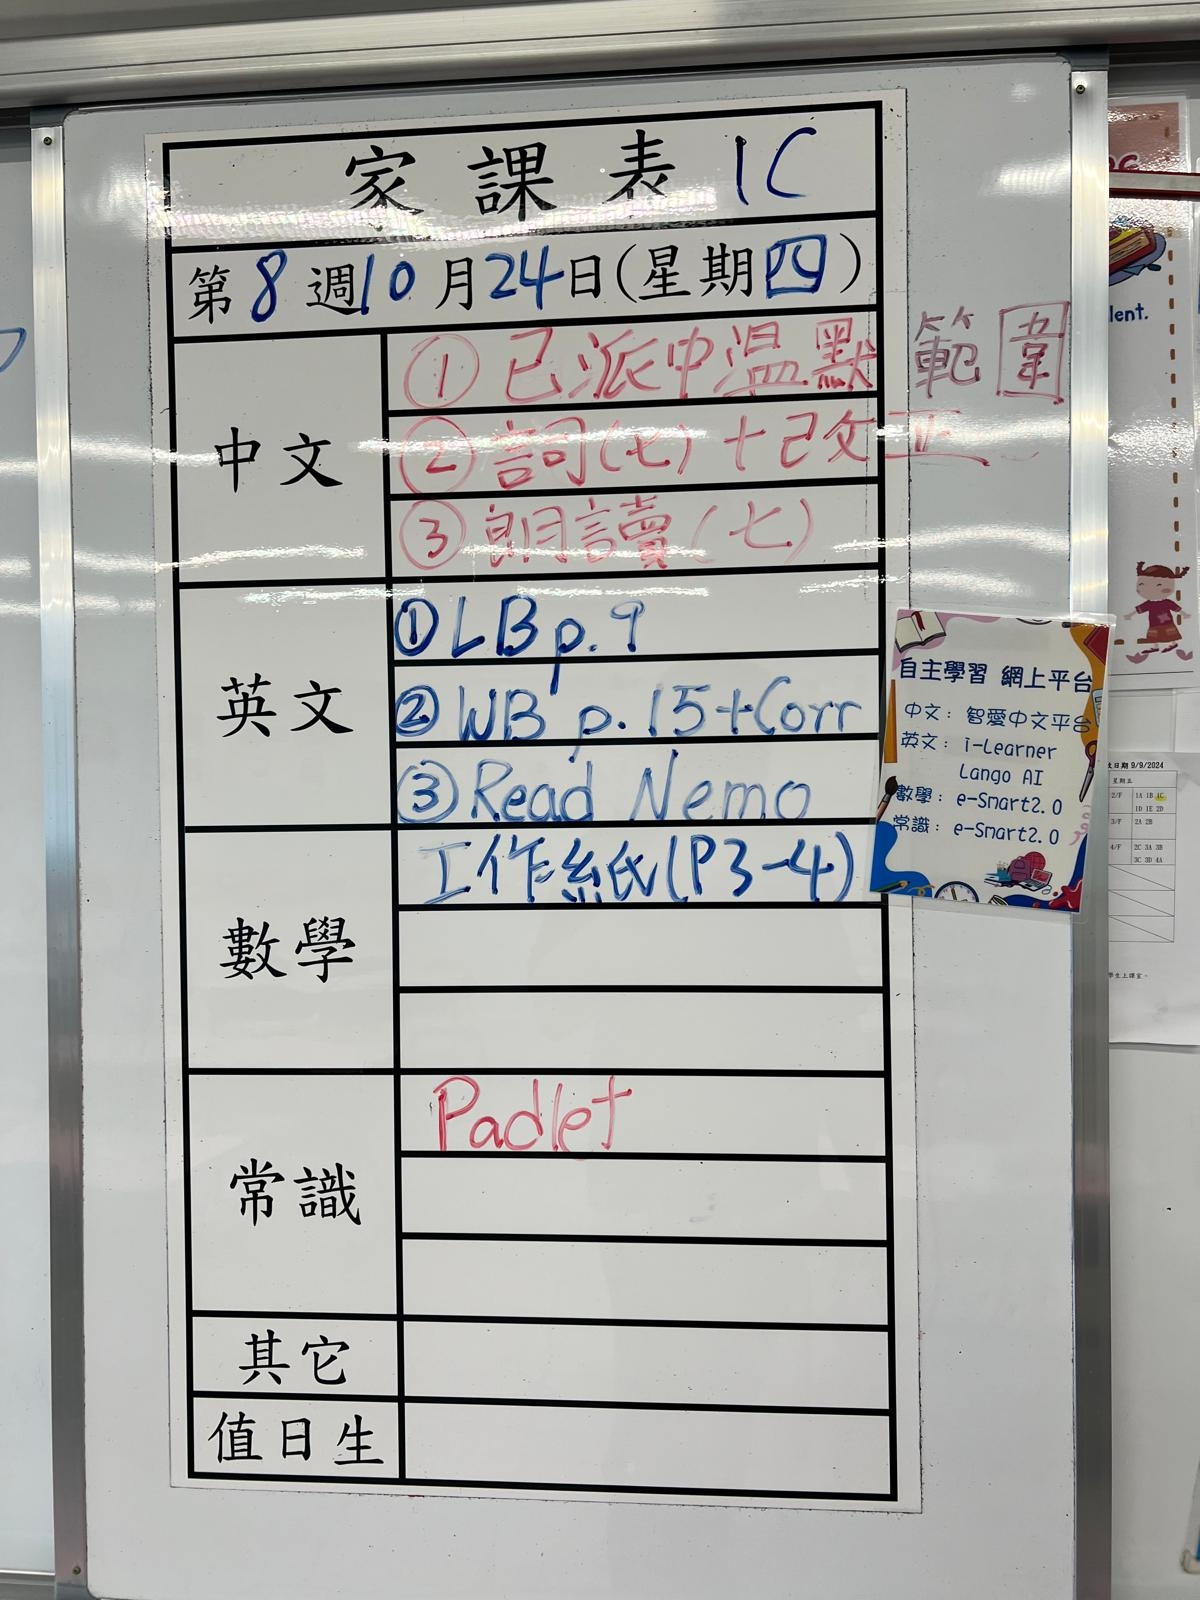 家課表 1C
第8週10月24日(星期四)
中文
① 已派中溫默範圍
② 詞(七)+改正
③ 朗讀(七)
英文
① LB p.9
② WB p.15+Corr
③ Read Nemo
數學
工作紙(P3-4)
常識
Padlet
其它
值日生
自主學習 網上平台
中文：智愛中文平台
英文：i-Learner
Lango AI
數學：e-Smart2.0
常識：e-Smart2.0
lent.
日期 9/9/2024
星期五
2/F 1A 1B 1C
1D 1E 2D
3/F 2A 2B
4/F 2C 3A 3B
3C 3D 4A
學生上課室。